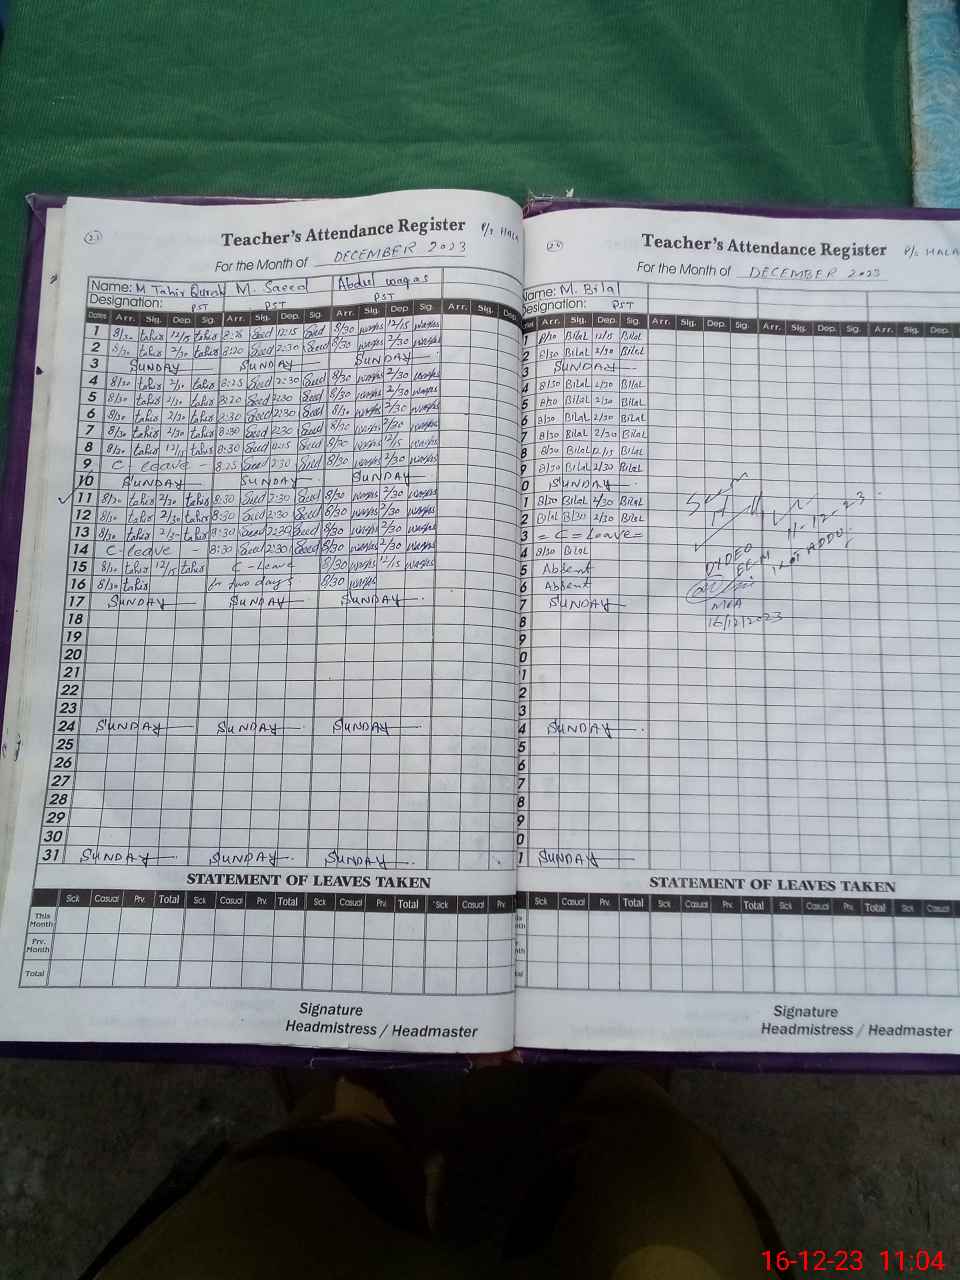 (23)
Teacher's Attendance Register P/S HALA
For the Month of DECEMBER 2023
Name: M Tahir Qurash M. Saeed Abdul waqas
Designation: PST PST PST
Dates Arr. Sig. Dep. Sig. Arr. Sig. Dep. Sig. Arr. Sig. Dep Sig. Arr. Sig. Dep.
1 8/30 tahir 12/15 tahir 8:25 Saed 12:15 Saed 8/30 waqas 12/15 waqas
2 8/30 tahir 2/30 tahir 8:20 Saed 2:30 Saed 8/30 waqas 2/30 waqas
3 SUNDAY SUNDAY SUNDAY
4 8/30 tahir 2/30 tahir 8:25 Saed 2:30 Saed 8/30 waqas 2/30 waqas
5 8/30 tahir 2/30 tahir 8:20 Saed 2:30 Saed 8/30 waqas 2/30 waqas
6 8/30 tahir 2/30 tahir 2:30 Saed 2:30 Saed 8/30 waqas 2/30 waqas
7 8/30 tahir 2/30 tahir 8:30 Saed 2:30 Saed 8/30 waqas 2/30 waqas
8 8/30 tahir 12/15 tahir 8:30 Saed 12:15 Saed 8/30 waqas 12/15 waqas
9 C - leave - 8:25 Saed 2:30 Saed 8/30 waqas 2/30 waqas
10 SUNDAY SUNDAY SUNDAY
11 8/30 tahir 2/30 tahir 8:30 Saed 2:30 Saed 8/30 waqas 2/30 waqas
12 8/30 tahir 2/30 tahir 8:30 Saed 2:30 Saed 8/30 waqas 2/30 waqas
13 8/30 tahir 2/30 tahir 8:30 Saed 2:30 Saed 8/30 waqas 2/30 waqas
14 C-leave - 8:30 Saed 2:30 Saed 8/30 waqas 2/30 waqas
15 8/30 tahir 12/15 tahir C-Leave 8/30 waqas 12/15 waqas
16 8/30 tahir for two days 8/30 waqas
17 SUNDAY SUNDAY SUNDAY
18
19
20
21
22
23
24 SUNDAY SUNDAY SUNDAY
25
26
27
28
29
30
31 SUNDAY SUNDAY SUNDAY
STATEMENT OF LEAVES TAKEN
Sck Casual Prv. Total Sck Casual Prv. Total Sck Casual Prv. Total Sck Casual Prv
This Month
Prv. Month
Total
Signature
Headmistress / Headmaster
(24)
Teacher's Attendance Register P/S HALA
For the Month of DECEMBER 2023
Name: M. Bilal
Designation: PST
Arr. Sig. Dep. Sig. Arr. Sig. Dep. Sig. Arr. Sig. Dep. Sig. Arr. Sig. Dep.
1 8/30 Bilal 12/15 Bilal
2 8/30 Bilal 2/30 Bilal
3 SUNDAY
4 8/30 Bilal 2/30 Bilal
5 8/30 Bilal 2/30 Bilal
6 8/30 Bilal 2/30 Bilal
7 8/30 Bilal 2/30 Bilal
8 8/30 Bilal 12/15 Bilal
9 8/30 Bilal 2/30 Bilal
0 SUNDAY
1 8/30 Bilal 2/30 Bilal
2 Bilal 8/30 2/30 Bilal
3 = C = Leave =
4 8/30 Bilal
5 Absent
6 Absent
7 SUNDAY
8
9
0
1
2
3
4 SUNDAY
5
6
7
8
9
0
1 SUNDAY
11-12-23
DYDEO
EE-M
MEA
16/12/2023
STATEMENT OF LEAVES TAKEN
Sck Casual Prv. Total Sck Casual Prv. Total Sck Casual Prv. Total Sck Casual
Signature
Headmistress / Headmaster
16-12-23 11:04